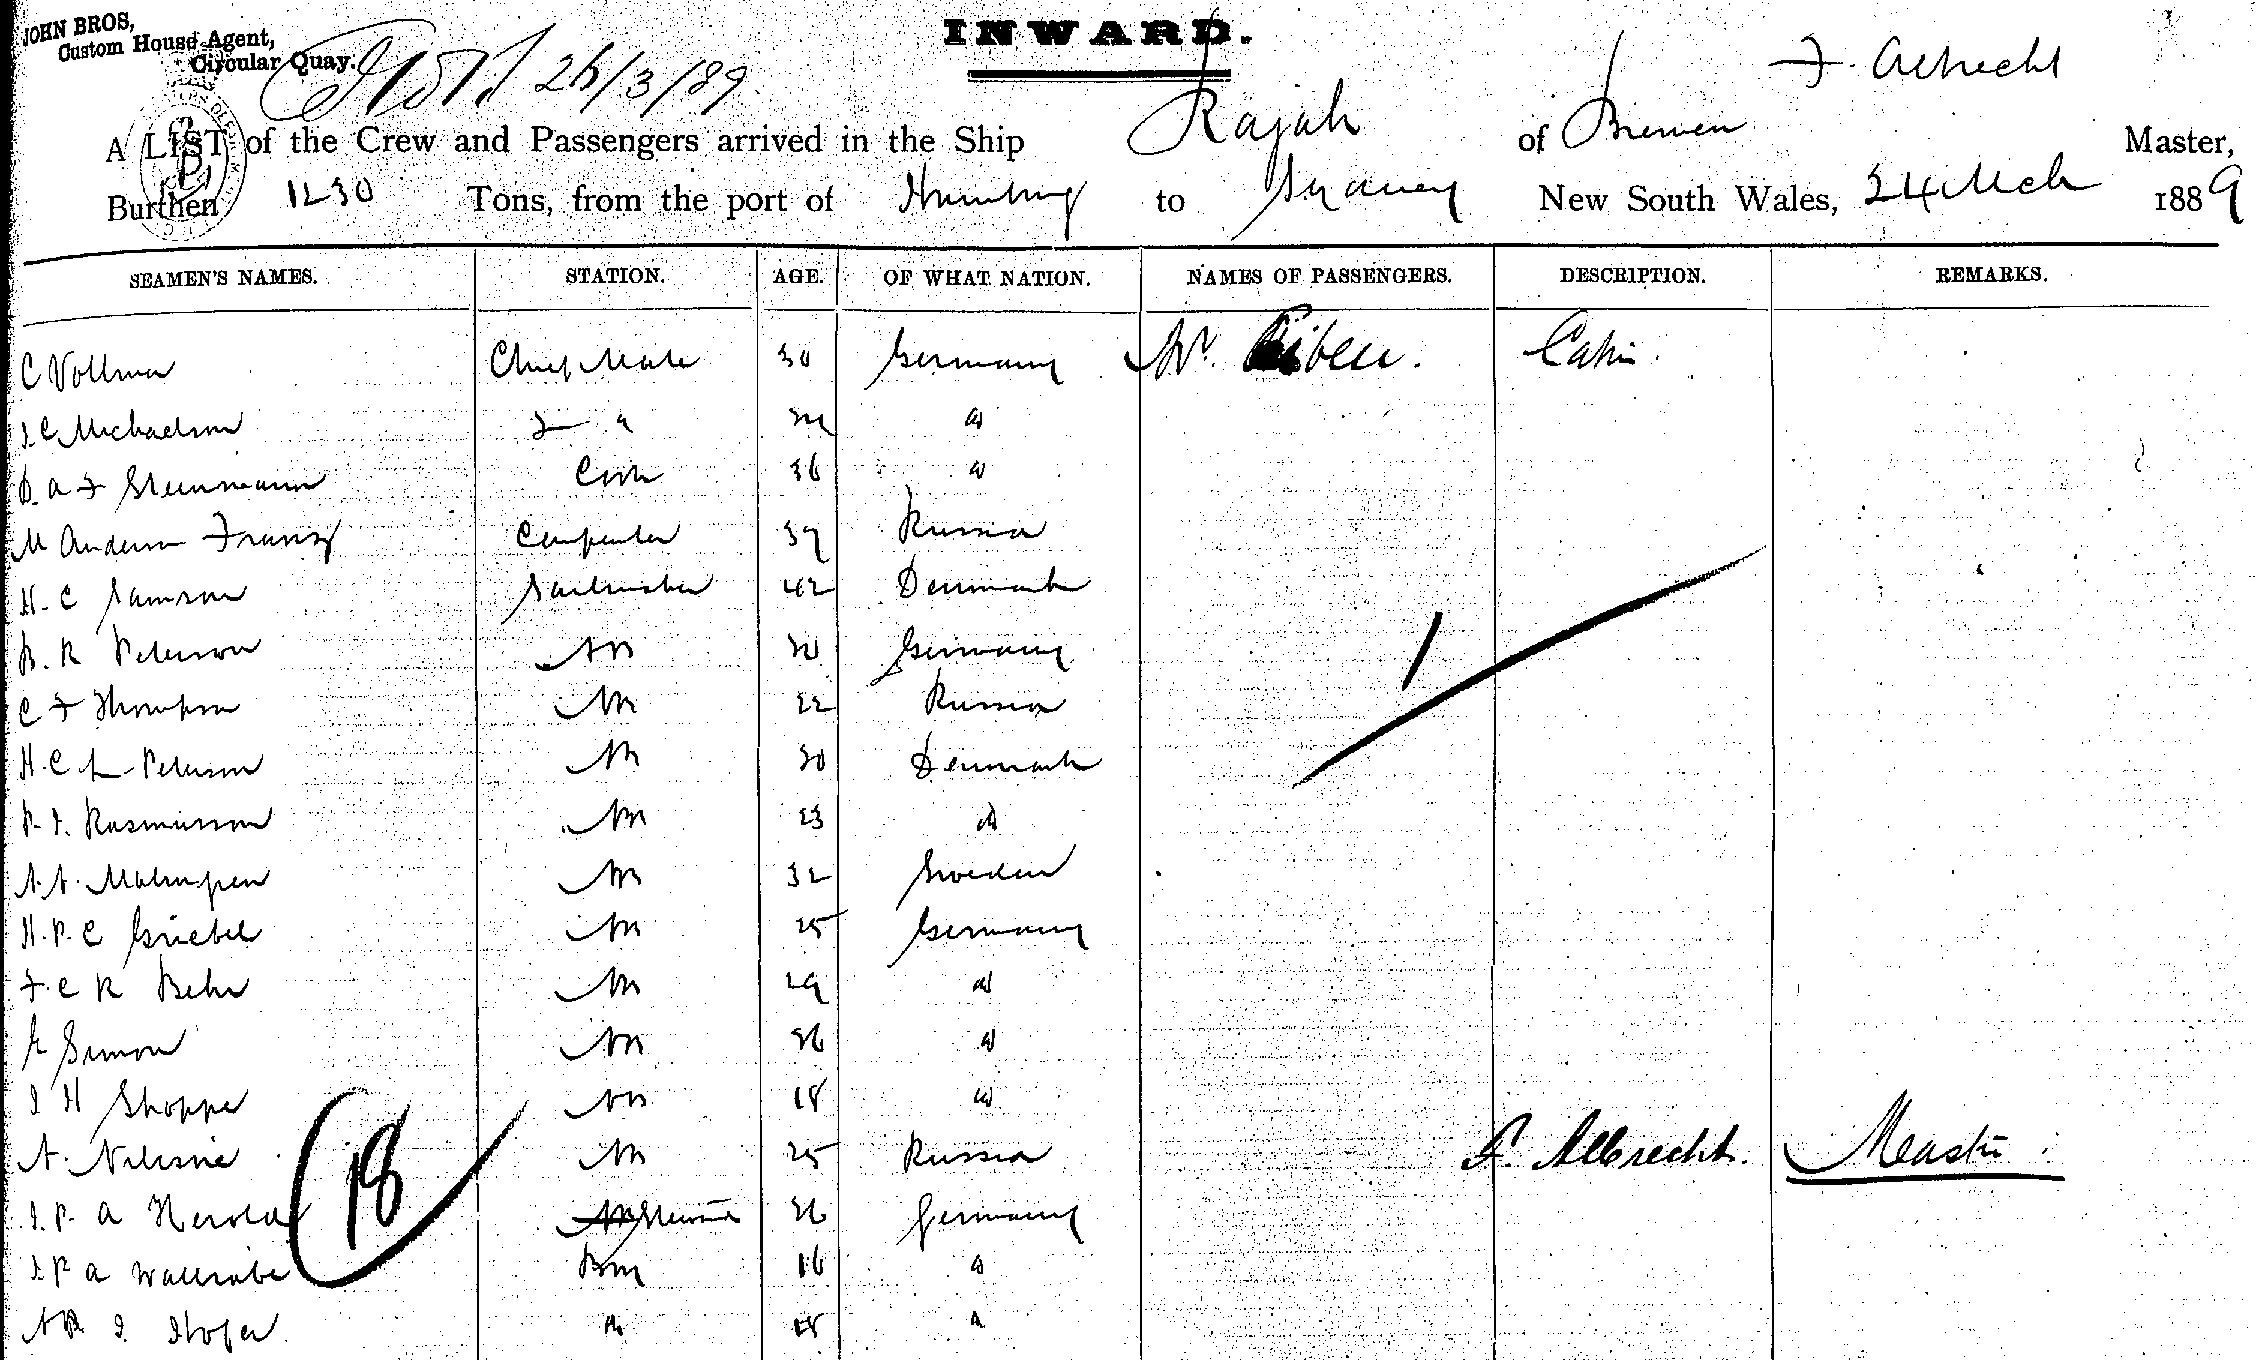 JOHN BROS,
Custom House Agent,
Circular Quay.
INWARD.
26/3/89
F. Albrecht
A LIST of the Crew and Passengers arrived in the Ship Rajah of Bremen Master,
Burthen 1230 Tons, from the port of Hamburg to Sydney New South Wales, 24 Mch 1889
SEAMEN'S NAMES. STATION. AGE. OF WHAT NATION. NAMES OF PASSENGERS. DESCRIPTION. REMARKS.
C Vollmer Chief Mate 30 Germany Mr. Cabin.
J C Michaelson 2 "
D A F Steinmann Cook 36 "
M Anderson Franz Carpenter 39 Russia
H. C Samson Sailmaker 42 Denmark
B. R Peterson AB Germany
C F Thompson AB 22 Russia
H. C L Peterson AB 30 Denmark
P. J. Rasmusson AB 23 "
A. A. Malmgren AB 32 Sweden
H. P. C Griebel AB 25 Germany
F. C R Behr AB 29 "
Simon AB "
J H Shoppe AB 18 "
A. AB 25 Russia F. Albrecht. Master
J. P. A Herold Steward Germany
J P A Wallrabe Boy 16 "
J " "
18